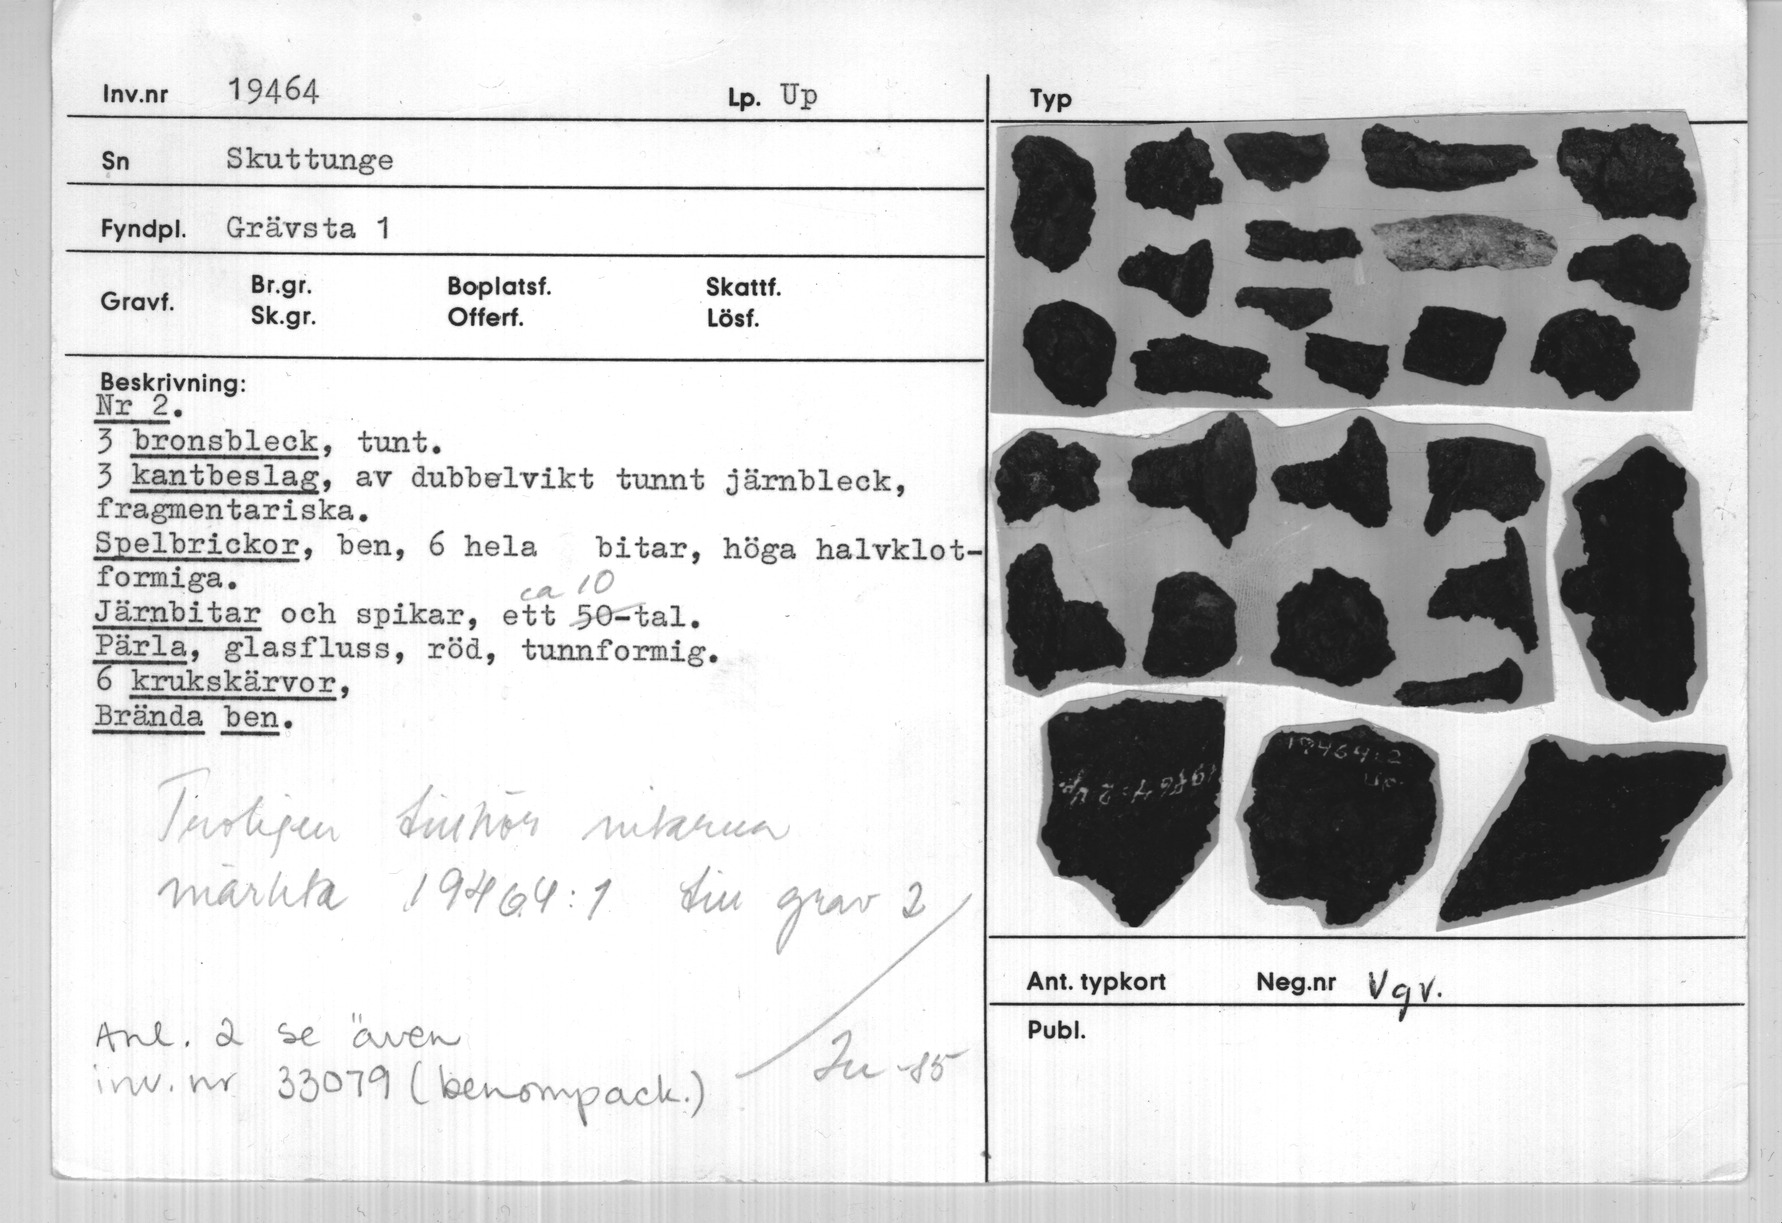 Inv.nr 19464 Lp. Up
Sn Skuttunge
Fyndpl. Grävsta 1
Gravf. Br.gr. Boplatsf. Skattf.
Sk.gr. Offerf. Lösf.
Beskrivning:
Nr 2.
3 bronsbleck, tunt.
3 kantbeslag, av dubbelvikt tunnt järnbleck,
fragmentariska.
Spelbrickor, ben, 6 hela bitar, höga halvklot-
formiga.
ca 10
Järnbitar och spikar, ett 50-tal.
Pärla, glasfluss, röd, tunnformig.
6 krukskärvor,
Brända ben.
Troligen tillhör nitarna
märkta 19464:1 till grav 2
Anl. 2 se även
inv. nr 33079 (benompack.)
-85
Typ
19464:2 Up.
19464:2
Up.
Ant. typkort Neg.nr Vgv.
Publ.